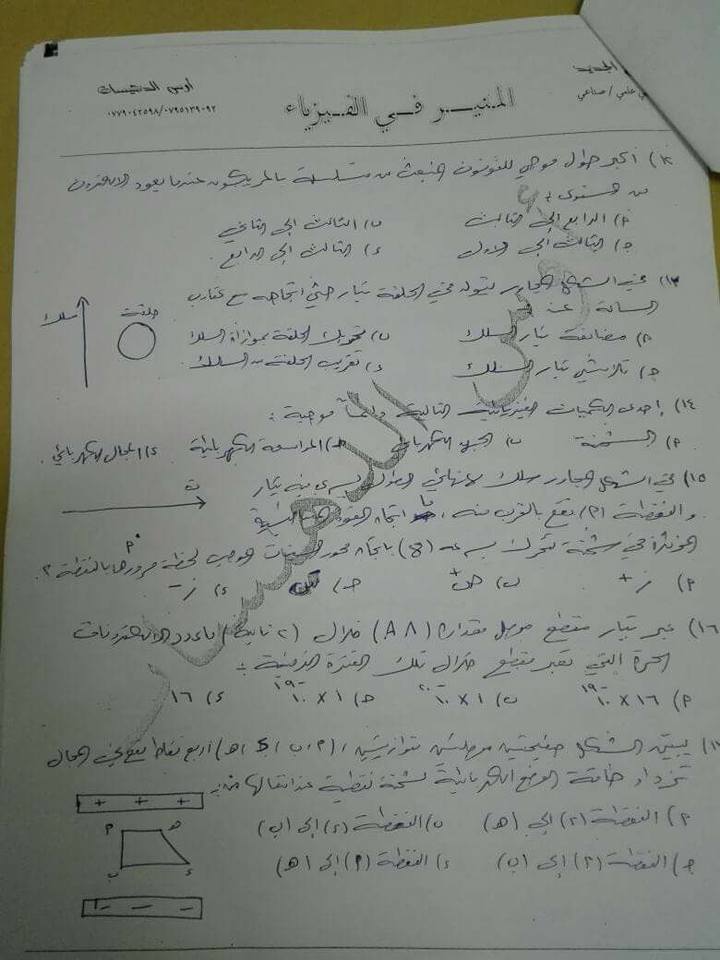 الجديد
علمي / صناعي
المنير في الفيزياء
أوس الدنتيسات
٠٧٧٩٠٤٢٥٩٨/٠٧٩٥١٣٩٠٩٢
١٢) أكبر طول موجي للفوتون المنبعث من متسلسلة بالمر يكون عندما يعود الالكترون
من المستوى :
٢) الرابع إلى الثالث ب) الثالث إلى الثاني
جـ) الثالث إلى الاول د) الثالث إلى الرابع
١٣) في الشكل المجاور يتولد في الحلقة تيار حثي اتجاهه مع عقارب
الساعة عند :
سلك
حلقة
٢) مضاعفة تيار السلك ب) تحريك الحلقة بموازاة السلك
جـ) تلاشي تيار السلك د) تقريب الحلقة من السلك
١٤) إحدى الكميات الفيزيائية التالية دائماً موجبة :
٢) الشحنة ب) الجهد الكهربائي جـ) المواسعة الكهربائية د) المجال الكهربائي
١٥) في الشكل المجاور سلك لانهائي الطول يسري فيه تيار
ت
والنقطة (٢) تقع بالقرب منه ، اتجاه القوة
المؤثرة في شحنة تتحرك بسرعة (ع) باتجاه محور السينات الموجب لحظة مرورها بالنقطة ٢
٢
٢) ز+ ب) ص+ جـ) د) ز−
١٦) عبر تيار مقطع موصل مقداره (٨ A) خلال (٢ ثانية) ما عدد الالكترونات
الحرة التي تعبر مقطع خلال تلك الفترة الزمنية :
٢) ١٦ × ١٠−١٩ ب) ١ × ١٠−٢٠ جـ) ١ × ١٠−١٩ د) ١٦
١٧) يبين الشكل صفيحتين موصلتين متوازيتين ، (٢، ب، د، هـ) أربع نقاط تقع في المجال
تزداد طاقة الوضع الكهربائية لشحنة نقطية عند انتقالها من :
+ + +
٢) النقطة (٢) إلى (هـ) ب) النقطة (د) إلى (ب)
جـ) النقطة (٢) إلى (ب) د) النقطة (٢) إلى (هـ)
٢ هـ
ب د
− − −